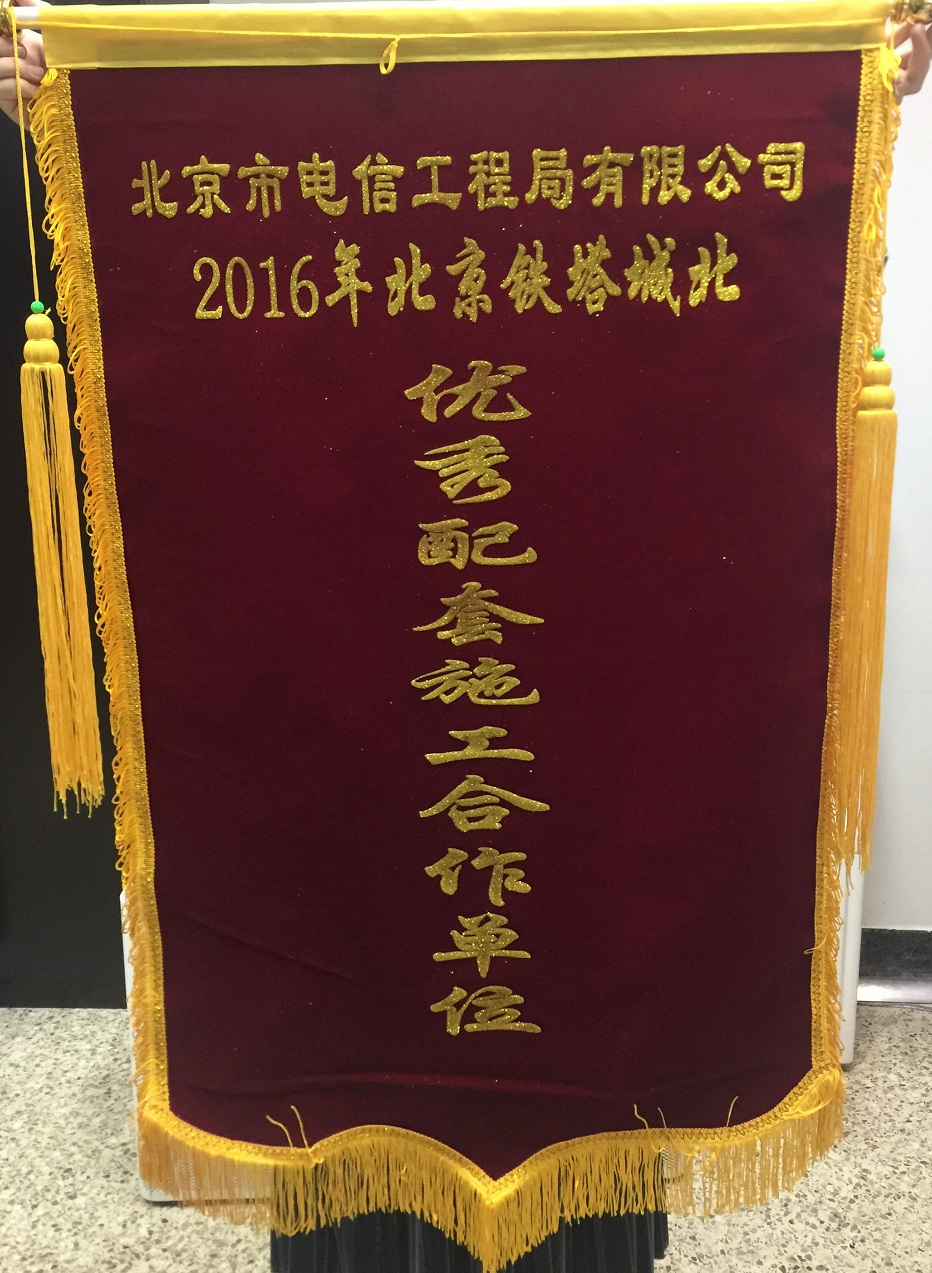 北京市电信工程局有限公司
2016年北京铁塔城北
优秀配套施工合作单位